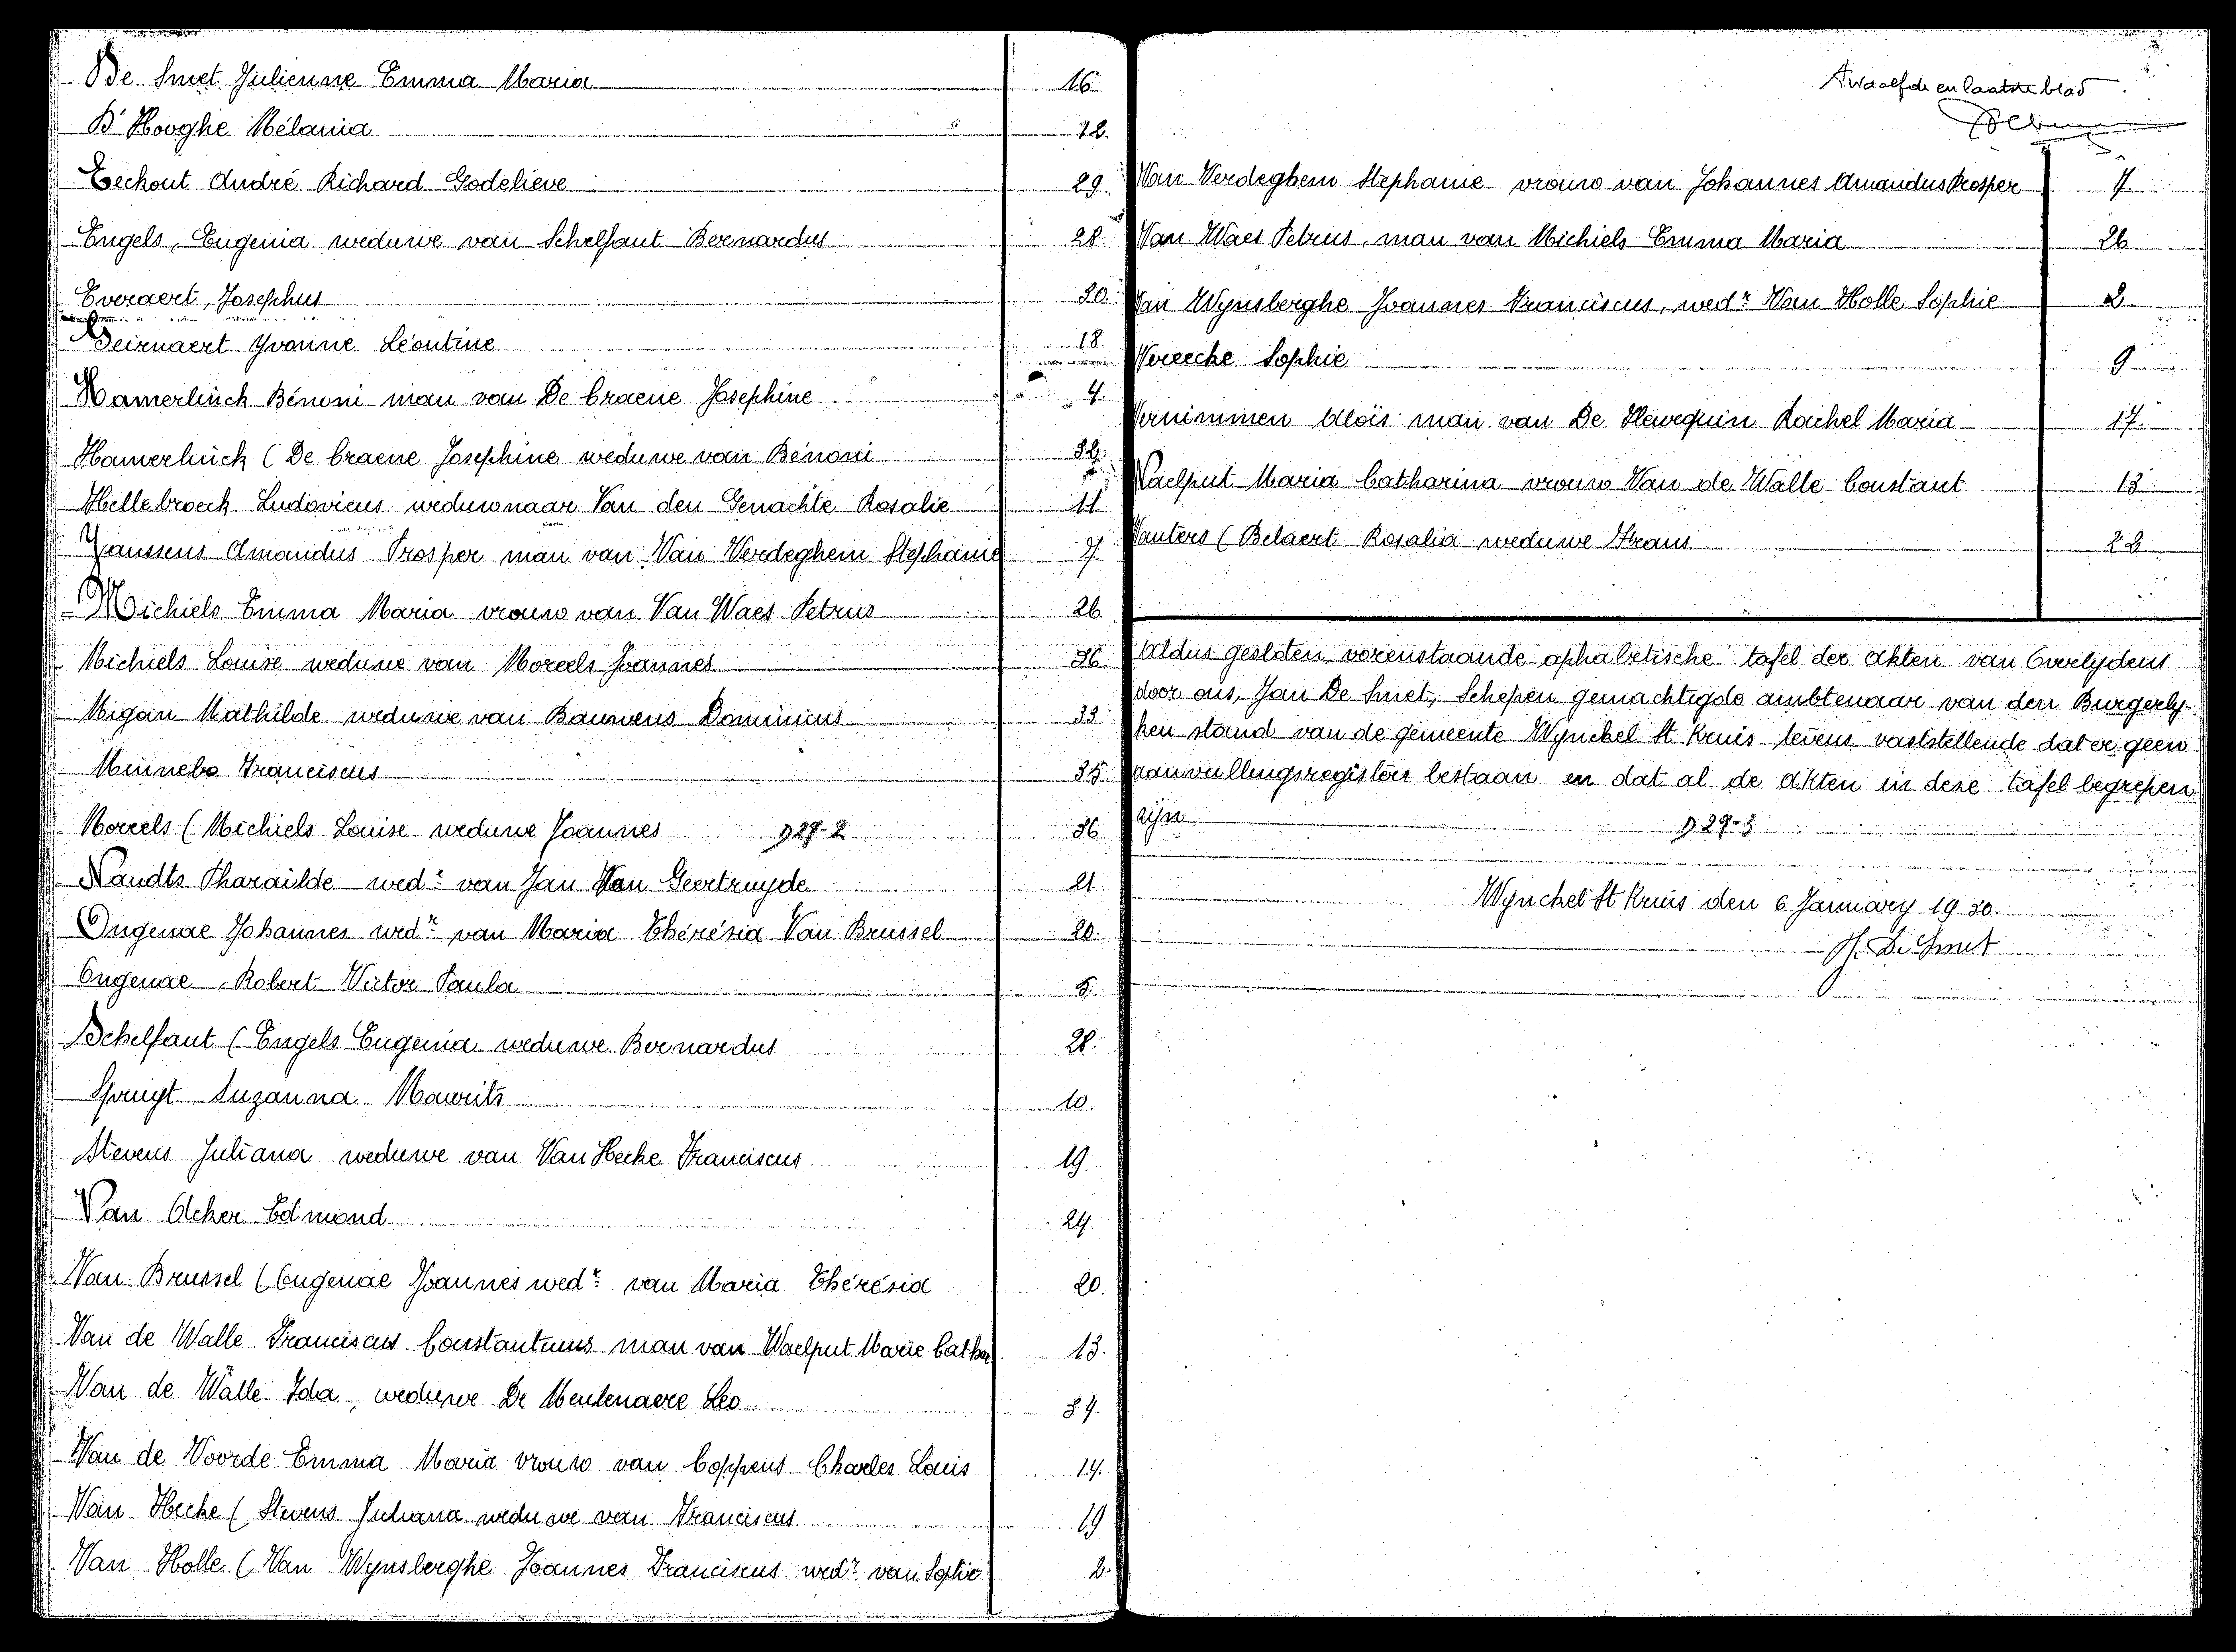 De Smet Julienne Emma Maria 16
D'Hooghe Mélania 12.
Eeckout André Richard Godelieve 29.
Engels, Eugenia weduwe van Schelfaut Bernardus 28.
Everaert, Josephus 30.
Geirnaert Yvonne Léontine 18.
Hamerlinck Bénoni man van De braene Josephine 4.
Hamerlinck (De braene Josephine weduwe van Bénoni 32.
Hellebroeck Ludovicus weduwnaar Van den Genachte Rosalie 11.
Janssens Amandus Prosper man van Van Verdeghem Stephanie 7.
Michiels Emma Maria vrouw van Van Waes Petrus 26.
Michiels Louise weduwe van Moreels Joannes 36
Migom Mathilde weduwe van Bauwens Dominicus 33
Minnebo Franciscus 35.
Moreels (Michiels Louise weduwe Joannes 1929-2 36
Nandts Pharaïlde wed.e van Jan Van Geertruyde 21.
Ongenae Johannes wed.r van Maria Thérésia Van Brussel 20.
Ongenae, Robert Victor Paula 8.
Schelfaut (Engels Eugenia weduwe Bernardus 28.
Spruyt Suzanna Mawrits 10.
Stevens Juliana weduwe van Van Hecke Franciscus 19.
Van Acker Edmond 24.
Van Brussel (Ongenae Joannes wed.r van Maria Thérésia 20.
Van de Walle Franciscus Constantinus man van Waelput Marie Cathar 13.
Van de Walle Ida, weduwe De Meulenaere Leo 34.
Van de Voorde Emma Maria vrouw van Coppens Charles Louis 14.
Van Hecke (Stevens Juliana weduwe van Franciscus 19
Van Holle (Van Wynsberghe Joannes Franciscus wed.r van Sophie 2.
Twaalfde en laatste blad
Van Verdeghem Stephanie vrouw van Johannes Amandus Prosper 7
Van Waes Petrus, man van Michiels Emma Maria 26
Van Wynsberghe Joannes Franciscus, wed.r Van Holle Sophie 2
Vereecke Sophie 9
Vernimmen Aloïs man van De Clewequin Rachel Maria 17
Waelput Maria Catharina vrouw Van de Walle Constant 13
Wauters (Belaert Rosalia weduwe Frans 22
Aldus gesloten vorenstaande aphabetische tafel der akten van Overlydens
door ons, Jan De Smet, Schepen gemachtigde ambtenaar van den Burgerly-
ken stand van de gemeente Wynckel St Kruis tevens vaststellende dat er geen
aanvullingsregisters bestaan en dat al de akten in deze tafel begrepen
zijn 1929-3
Wynckel St Kruis den 6 January 1930.
J. De Smet